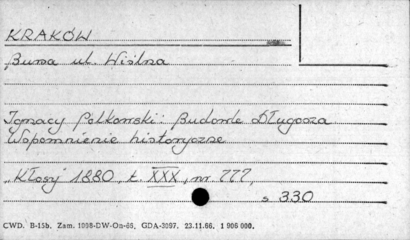 KRAKÓW
Bursa ul. Wiślna
Ignacy Polkowski: Budowle Długosza
Wspomnienie historyczne
„Kłosy" 1880, t. XXX, nr. 777,
s 330
CWD. B-15b. Zam. 1098-DW-On-65. GDA-3097. 23.11.66. 1 906 000.